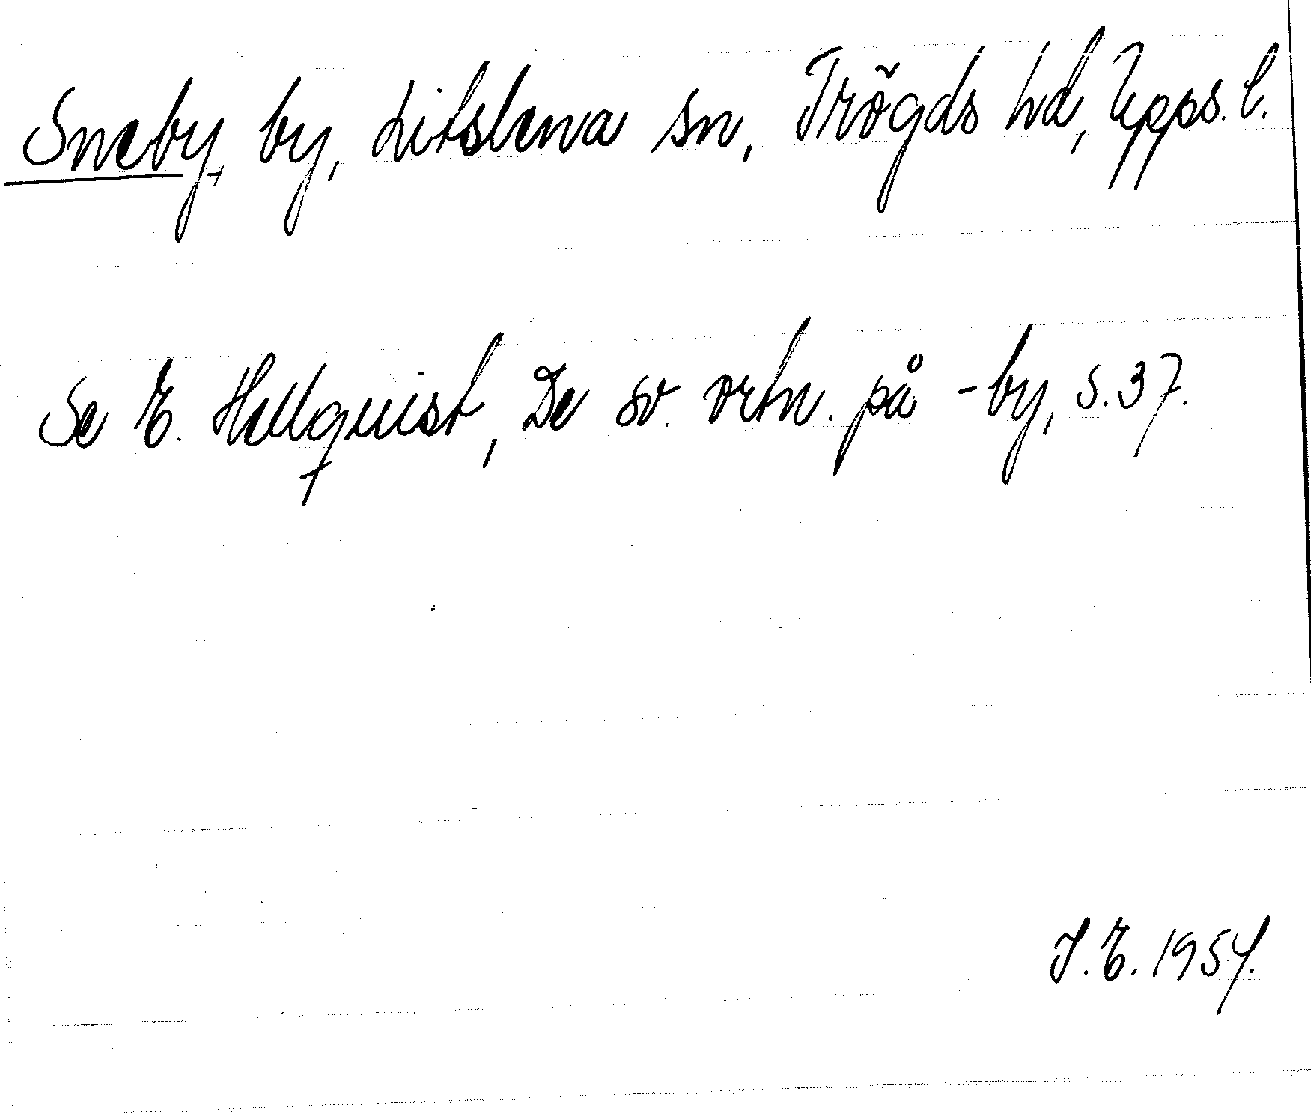 Sneby, by, Litslena sn, Trögds hd, Upps. l.
Se E. Hellquist, De sv. ortn. på -by, s. 37.
J. E. 1954.